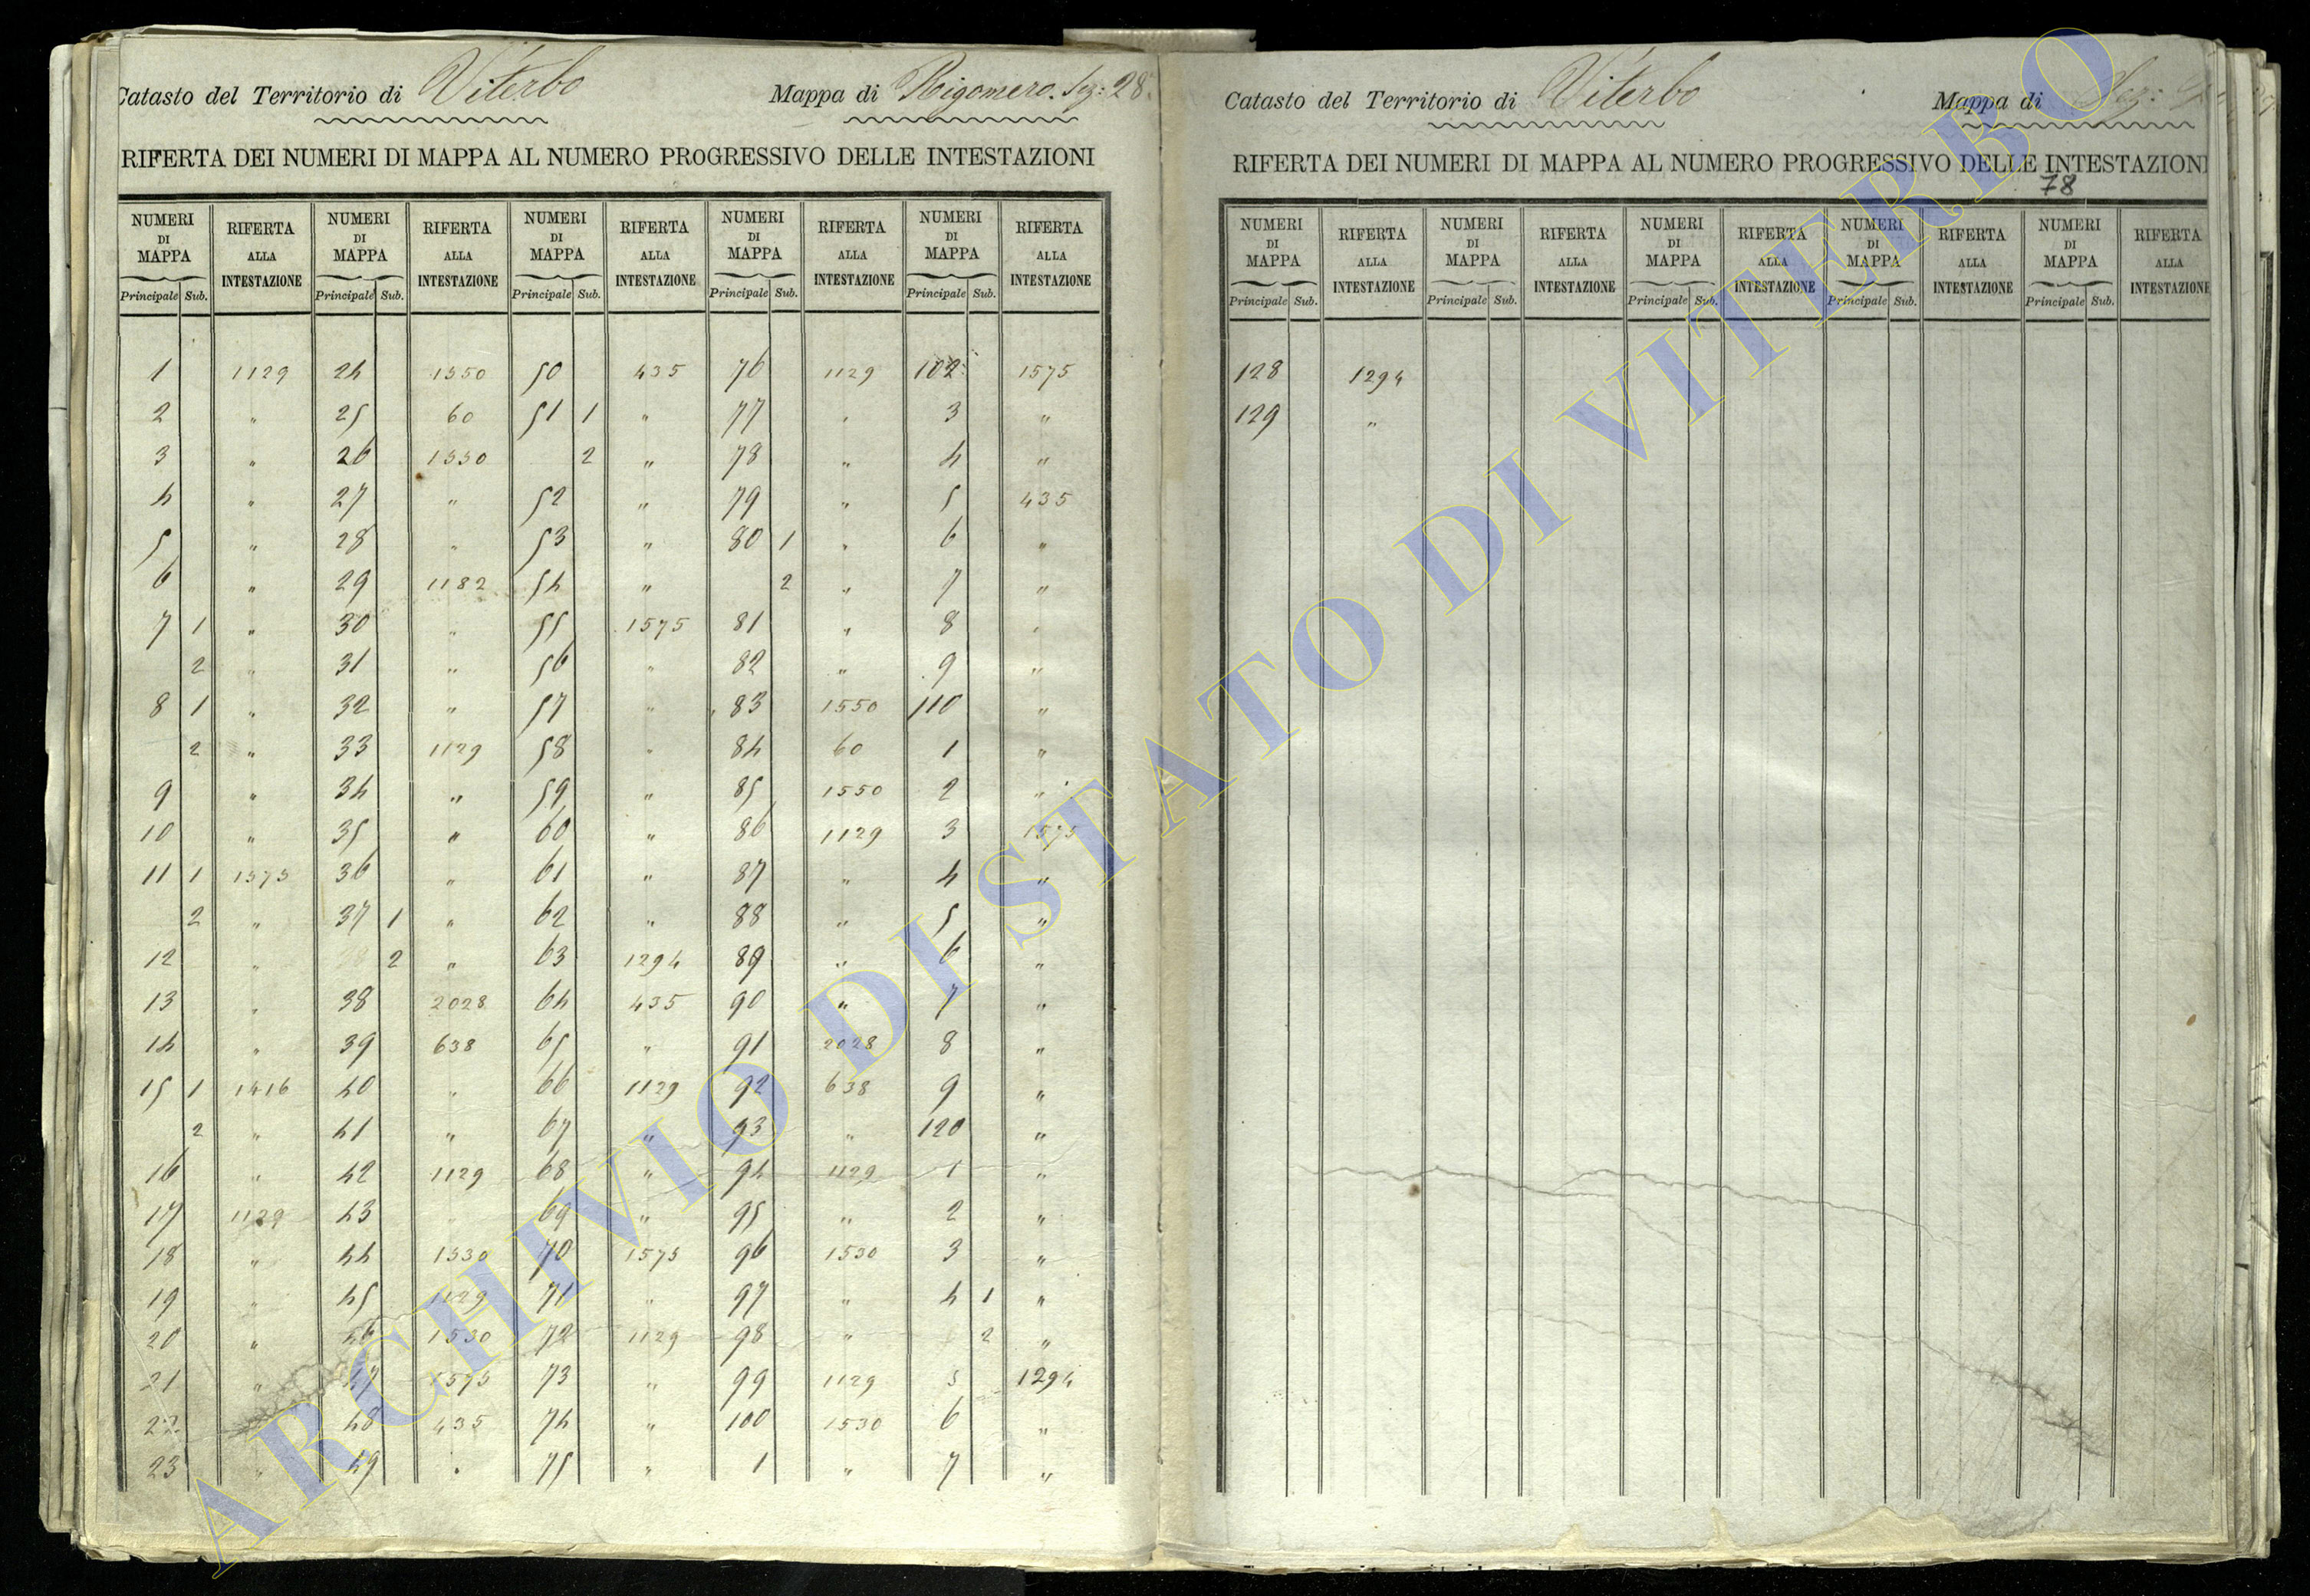 Catasto del Territorio di Viterbo Mappa di Rigomero. Sez: 28.
RIFERTA DEI NUMERI DI MAPPA AL NUMERO PROGRESSIVO DELLE INTESTAZIONI
NUMERI DI MAPPA RIFERTA ALLA INTESTAZIONE NUMERI DI MAPPA RIFERTA ALLA INTESTAZIONE NUMERI DI MAPPA RIFERTA ALLA INTESTAZIONE NUMERI DI MAPPA RIFERTA ALLA INTESTAZIONE NUMERI DI MAPPA RIFERTA ALLA INTESTAZIONE
Principale Sub. Principale Sub. Principale Sub. Principale Sub. Principale Sub.
1 1129 24 1550 50 435 76 1129 102 1575
2 " 25 60 51 1 " 77 " 3 "
3 " 26 1550 2 " 78 " 4 "
4 " 27 " 52 " 79 " 5 435
5 " 28 " 53 " 80 1 " 6 "
6 " 29 1182 54 " 2 " 7 "
7 1 " 30 " 55 1575 81 " 8 "
2 " 31 " 56 " 82 " 9 "
8 1 " 32 " 57 " 83 1550 110 "
2 " 33 1129 58 " 84 60 1 "
9 " 34 " 59 " 85 1550 2 "
10 " 35 " 60 " 86 1129 3 1575
11 1 1575 36 " 61 " 87 " 4 "
2 " 37 1 " 62 " 88 " 5 "
12 " 2 " 63 1294 89 " 6 "
13 " 38 2028 64 435 90 " 7 "
14 " 39 638 65 " 91 2028 8 "
15 1 1416 40 " 66 1129 92 638 9 "
2 " 41 " 67 " 93 " 120 "
16 " 42 1129 68 " 94 1129 1 "
17 1129 43 " 69 " 95 " 2 "
18 " 44 1530 70 1575 96 1530 3 "
19 " 45 1129 71 " 97 " 4 1 "
20 " 46 1530 72 1129 98 " 2 "
21 " 47 1575 73 " 99 1129 5 1294
22 " 48 435 74 " 100 1530 6 "
23 " 49 " 75 " 1 " 7 "
Catasto del Territorio di Viterbo Mappa di Sez:
RIFERTA DEI NUMERI DI MAPPA AL NUMERO PROGRESSIVO DELLE INTESTAZIONI
78
NUMERI DI MAPPA RIFERTA ALLA INTESTAZIONE NUMERI DI MAPPA RIFERTA ALLA INTESTAZIONE NUMERI DI MAPPA RIFERTA ALLA INTESTAZIONE NUMERI DI MAPPA RIFERTA ALLA INTESTAZIONE NUMERI DI MAPPA RIFERTA ALLA INTESTAZIONE
Principale Sub. Principale Sub. Principale Sub. Principale Sub. Principale Sub.
128 1294
129 "
ARCHIVIO DI STATO DI VITERBO